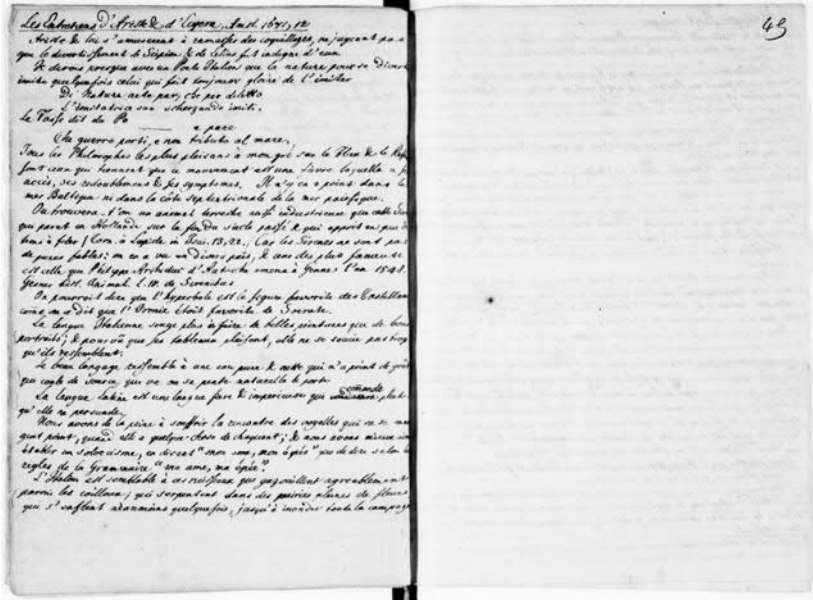 Les Entretiens d'Ariste & d'Eugene, Amst. 1671, 12
Ariste & lui s'amuserent à ramasser des coquillages, ne jugeant pas
que le divertissement de Scipion & de Lelius fut indigne d'eux
Je dirois presque avec un Poete Italien que la nature pour se divert
imite quelquefois celui qui fait toujours gloire de l'imiter
Di Natura arte par, che per diletto
L'imitatrice sua scherzando imiti.
Le Tasse dit du Po
e pare
Che guerra porti, e non tributo al mare.
Tous les Philosophes les plus plaisans à mon gré sur le Flux & le Reflu
sont ceux qui tiennent que ce mouvement est une fievre laquelle a ses
accès, ses redoublemens & ses symptomes. Il n'y en a point dans la
mer Baltique ni dans la côte septentrionale de la mer pacifique.
Ou trouvera-t'on un animal terrestre aussi industrieux que cette
qui parut en Hollande sur la fin du siecle passé & qui apprit en peu de
tems à filer (Corn. à Lapide in Isai. 13, 22.) Car les Sirenes ne sont pas
de pures fables: on en a vu en divers païs, & une des plus fameuses
est celle que Philippe Archiduc d'Autriche amena à Genes l'an 1548.
Gesner hist. animal. l. IV. de Sirenibus.
On pourroit dire que l'hyperbole est la figure favorite des Castillans
come on a dit que l'Ironie étoit favorite de Socrate.
La langue Italienne songe plus à faire de belles peintures que de bons
portraits; & pourvû que ses tableaux plaisent, elle ne se soucie pas trop
qu'ils ressemblent.
Le beau langage ressemble à une eau pure & nette qui n'a point de goût
qui coule de source, qui va où sa pente naturelle la porte
La langue Latine est une langue fiere & imperieuse qui comande plutôt
qu'elle ne persuade.
Nous avons de la peine à souffrir la rencontre des voyelles qui ne se man
gent point, quand elle a quelque chose de choquant; & nous avons mieux aimé
établir un solecisme, en disant "mon ame, mon épée" que de dire selon les
regles de la Grammaire "ma ame, ma épée".
L'Italien est semblable à ces ruisseaux qui gazouillent agreablement
parmis les cailloux; qui serpentent dans des prairies pleines de fleurs,
qui s'enflent néanmoins quelquefois, jusqu'à inonder toute la campagne
49